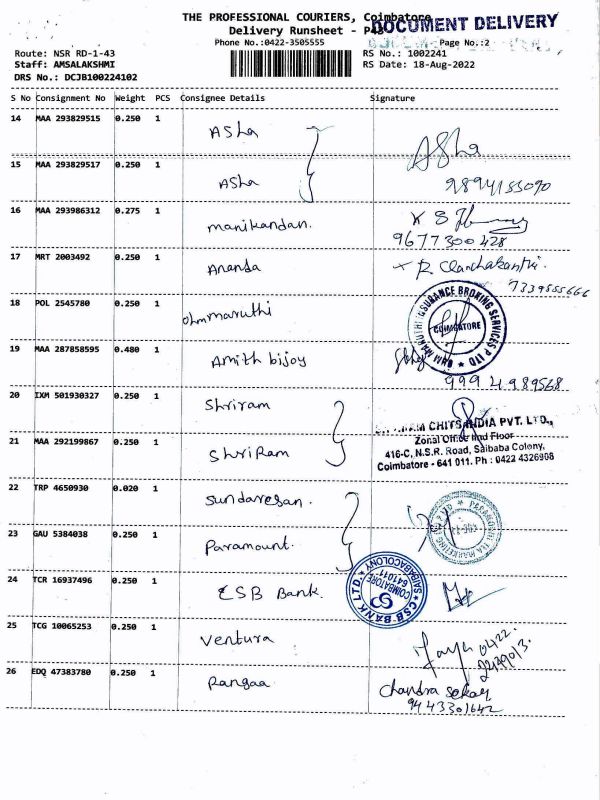 THE PROFESSIONAL COURIERS, Coimbatore
DOCUMENT DELIVERY
Delivery Runsheet - P43
Phone No.:0422-3505555 Page No.:2
Route: NSR RD-1-43 RS No.: 1002241
Staff: AMSALAKSHMI RS Date: 18-Aug-2022
DRS No.: DCJB100224102
S No Consignment No Weight PCS Consignee Details Signature
14 MAA 293829515 0.250 1 Asha Asha
15 MAA 293829517 0.250 1 Asha 9894155090
16 MAA 293986312 0.275 1 manikandan.
9677300428
17 MRT 2003492 0.250 1 Ananda R Chanchakanthi.
7339855666
18 POL 2545780 0.250 1 ohm maruthi
OHM MARUTHI INSURANCE BROKING SERVICES P LTD
COIMBATORE
19 MAA 287858595 0.480 1 Amith bijoy
9994989568
20 IXM 501930327 0.250 1 Shriram
CHITS INDIA PVT. LTD.,
Zonal Office IInd Floor
21 MAA 292199867 0.250 1 ShriRam 416-C, N.S.R. Road, Saibaba Colony,
Coimbatore - 641 011. Ph : 0422 4326908
22 TRP 4650930 0.020 1 Sundaresan.
23 GAU 5384038 0.250 1 Paramount.
24 TCR 16937496 0.250 1 CSB Bank.
CSB BANK LTD. SAIBABACOLONY
COIMBATORE
641011
25 TCG 10065253 0.250 1 Ventura 0422
26 EDQ 47383780 0.250 1 Rangaa Chandra sekar
9443301642